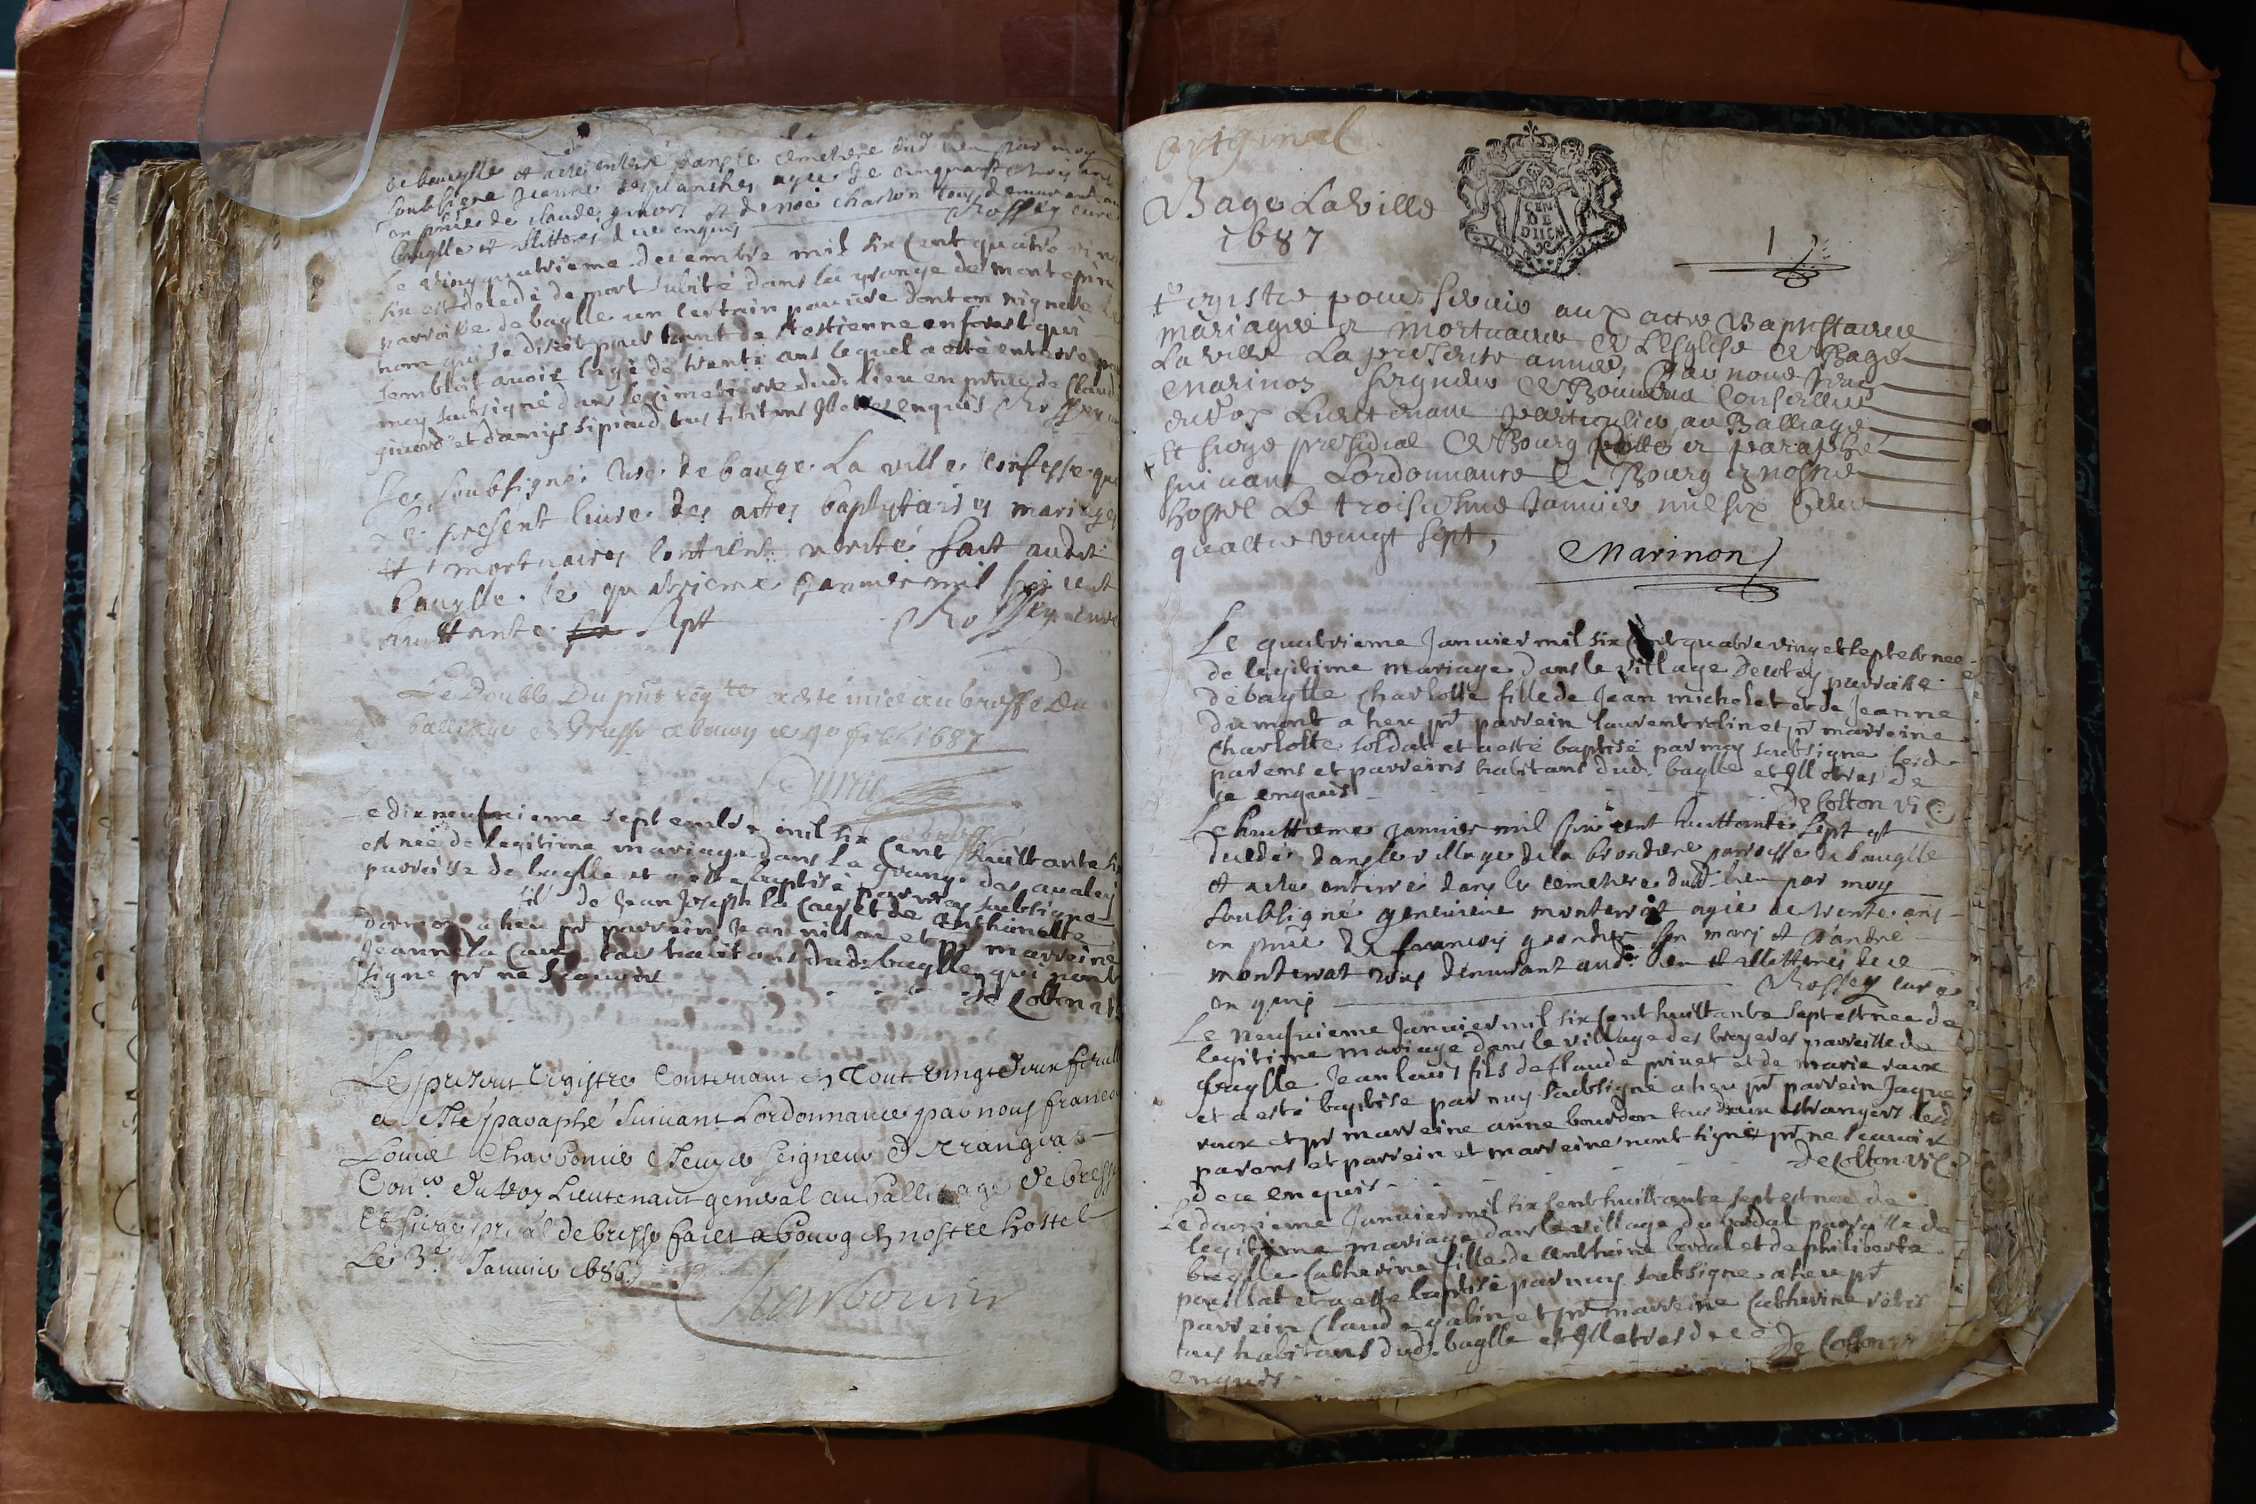 de baugille et a esté enterré dans le cemetiere dud lieu par moy
soubsigné Jeanne desplanches agée de cinquante trois ans
en pnce de claude guiors et de noé charlon tous demeurant
baugille et illittérés de ce enquis Rossey curé
Le vingquatrieme decembre mil six cent quatre vingt
six est decedé de mort subite dans la grange de montepin
parroisse de baglle un certain pauvre dont on nignore le
nom qui se disoit pour tant de Stostienne en forest qui
sembloit avoir l'age de trente ans lequel a esté enterré par
moy soubsigné dans le cimetiere dud. lieu en pnce de Claud
guiord et damys sipiaud tous habitans Illetrés enquis Rossey curé
Je soubsigné Curé de bauge La ville confesse que
Le present livre des actes baptistaires mariages
et mortuaires contient verité fait audit
baugille le quatrieme janvier mil six cent
huittante sept Rossey curé
Le Double Du pnt regte a esté mis au greffe Du
bailliage de Bresse a bourg ce 1687
e dix neufvieme septembre mil six Cent huittante six
est née de legitime mariage dans la grange des
parroisse de baglle et a esté baptisé par moy soubsigné
fil de Jean Joseph la Cour et de Anthonette
a heu pr parrein Jean et pr marreine
Jeanne la Cour tous habitans dud. baglle qui nont
signé pr ne scavoir
de Colton vic
Le present registre Contenant en Tout vingt deux feuill
a esté paraphé suivant Lordonnance par nous francois
Louis Charbonnier Escuyer seigneur de Crangeac
Conr du Roy Lieutenant general au bailliage de bresse
et siege pnal de bresse faict a bourg en nostre hostel
Le 3e Janvier 1686
Charbonnier
Original
Bage La Ville
1687
GEN
DE
DIION
1
Registre pour servir aux actes Baptistaires
mariages et mortuaires de Lesglise de Bagé
La ville La presente année, Par nous
Marinon seigneur de Conseiller
du Roy Lieutenant particulier au Balliage
et siege presidial de Bourg Cotté et paraphé
suivant Lordonnance A Bourg en nostre
hostel Le troisiesme Janvier mil six Cens
quattre vingt sept,
Marinon
Le quatrieme Janvier mil six Cent quatre ving et sept est nee
de legitime mariage dans le village parroisse
de baglle Charlotte fille de Jean michelet et de Jeanne
Dumont a heu pr parrein laurent rolin et pr marreine
Charlotte soldat et a esté baptisé par moy soubsigné lesd
parens et parreins habitans dud. baglle et Illetrés de
ce enquis
de Colton vic
Le huittieme janvier mil six cent huittante sept est
decedé dans le village de la brondiere parroisse de baugille
et a esté enterré dans le cemetiere dud. lieu par moy
soubsigné genevieve monterrat agée de trente ans
en pnce de francois grandier son mary et d'andré
monterrat tous demeurant aud. lieu et illettrés de ce
enquis Rossey curé
Le neufvieme Janvier mil six Cent huittante sept est nee de
legitime mariage dans le village des broyeres parroisse de
baglle Jean louis fils de Claude privet et de marie vaux
et a esté baptisé par moy soubsigné a heu pr parrein Jaque
vaux et pr marreine anne bourdon tous deux estrangers lesd
parens et parrein et marreine nont signé pr ne scavoir
de ce enquis
de Colton vic
Le douzieme Janvier mil six Cent huittante sept est nee de
legitime mariage dans le village du bordat parroisse de
baglle Catherine fille de anthoine bordat et de philiberte
et a esté baptisé par moy soubsigné a heu pr
parrein Claude galin et pr marreine Catherine
tous habitans dud. baglle et Illetrés de ce
enquis
de Colton vic